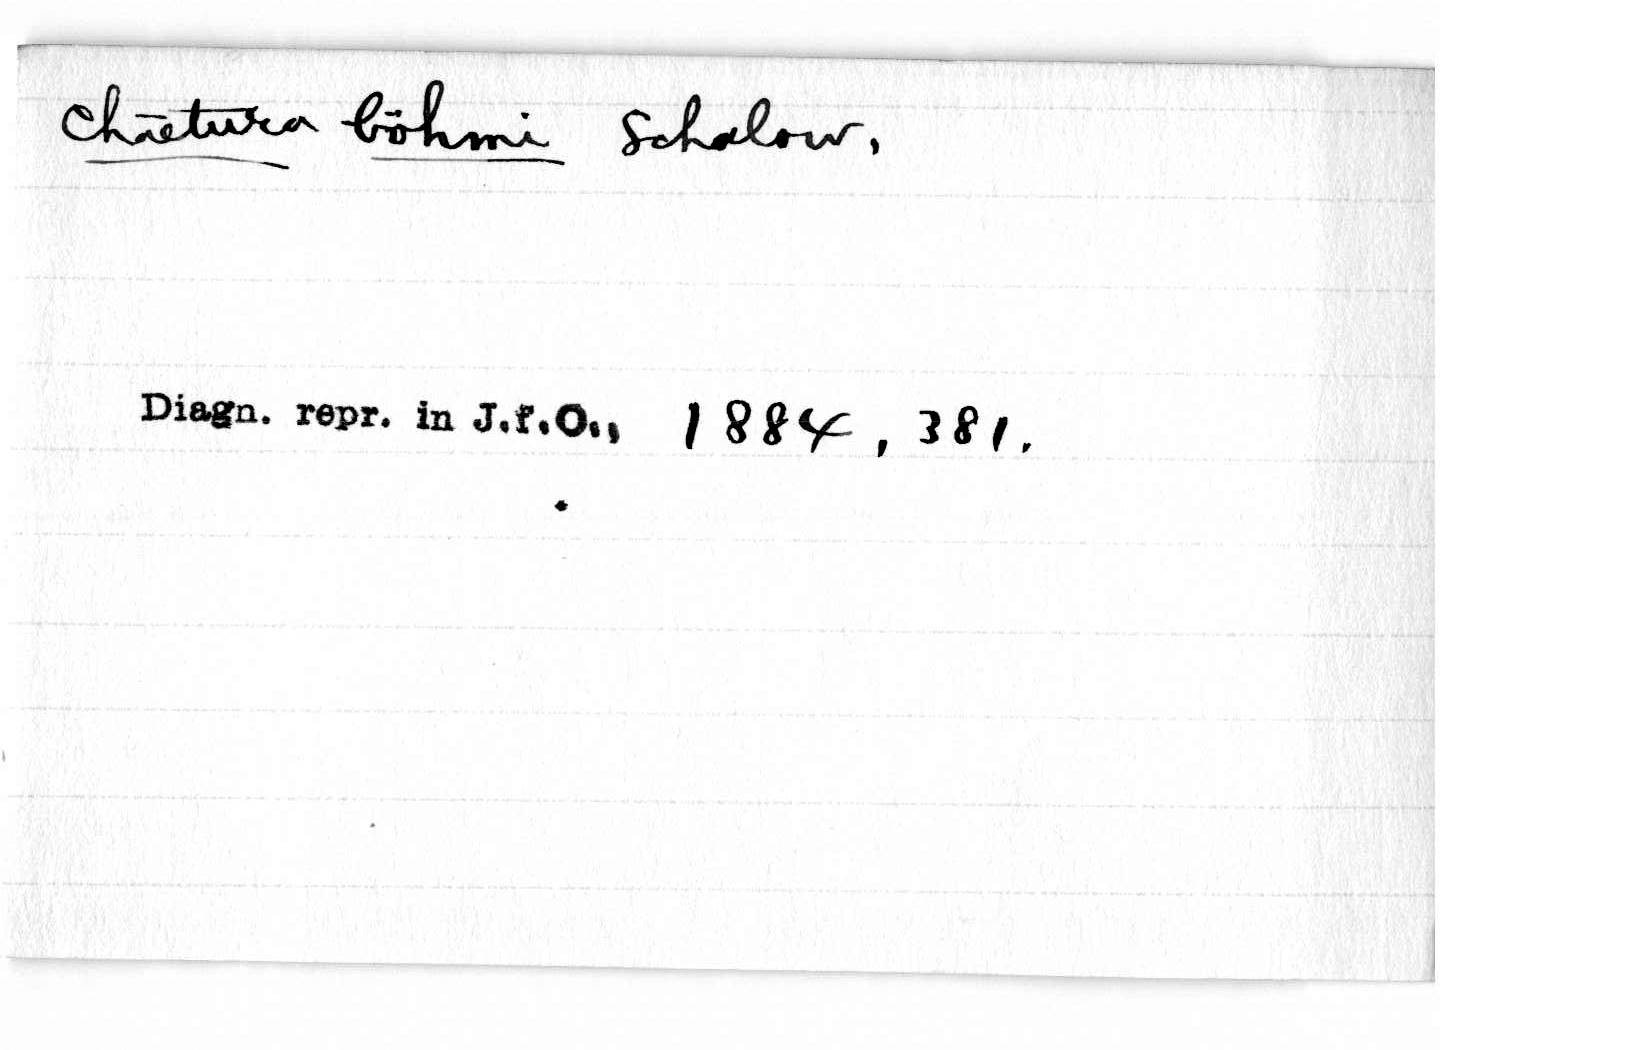 Chaetura böhmi Schalow.
Diagn. repr. in J.f.O., 1884, 381.